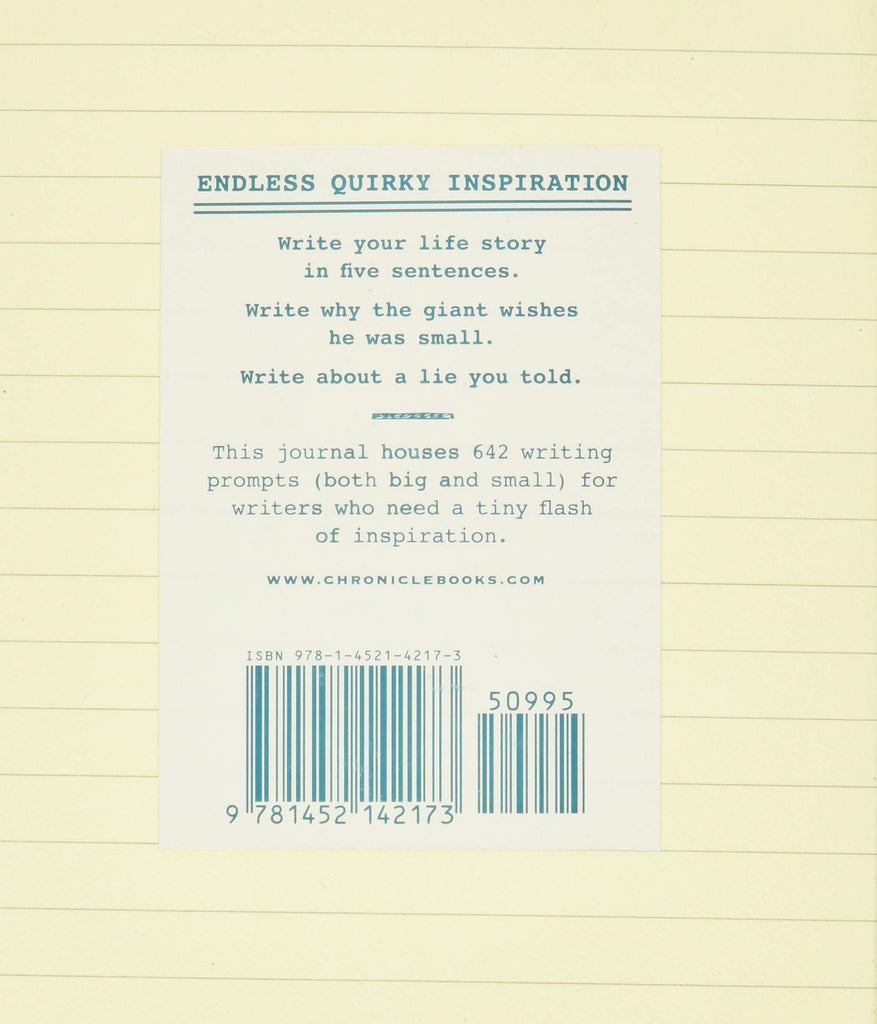 ENDLESS QUIRKY INSPIRATION
Write your life story
in five sentences.
Write why the giant wishes
he was small.
Write about a lie you told.
This journal houses 642 writing
prompts (both big and small) for
writers who need a tiny flash
of inspiration.
WWW.CHRONICLEBOOKS.COM
ISBN 978-1-4521-4217-3
50995
9 781452 142173